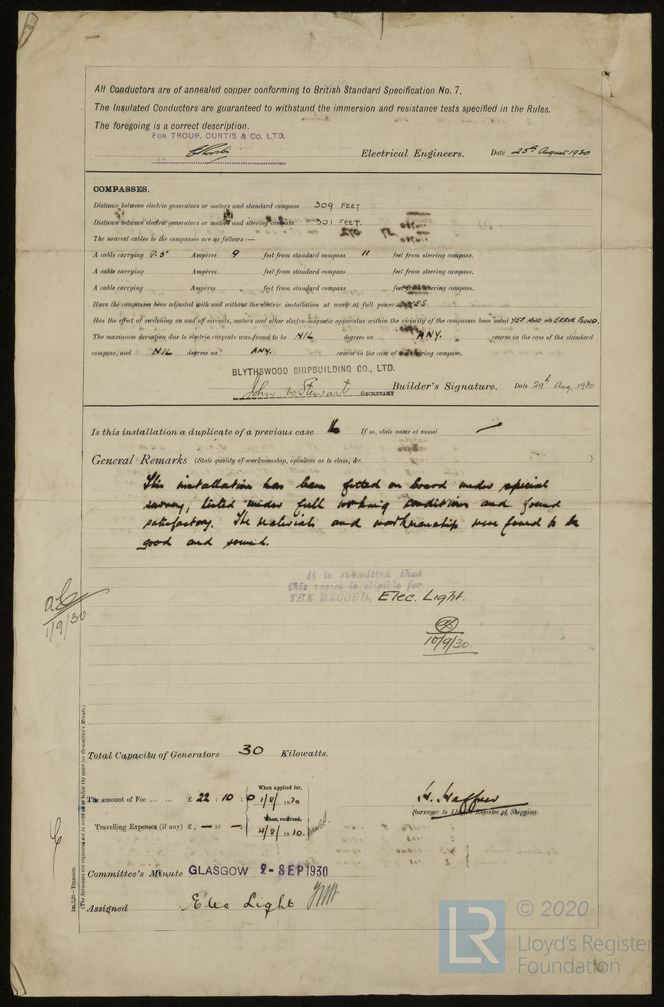 All Conductors are of annealed copper conforming to British Standard Specification No. 7.
The Insulated Conductors are guaranteed to withstand the immersion and resistance tests specified in the Rules.
The foregoing is a correct description.
FOR TROUP, CURTIS & CO. LTD.
Electrical Engineers. Date 25th August 1930
COMPASSES.
Distance between electric generators or motors and standard compass 309 FEET
Distance between electric generators or motors and steering compass 301 FEET.
The nearest cables to the compasses are as follows:—
A cable carrying 9.5 Ampères 9 feet from standard compass 11 feet from steering compass.
A cable carrying Ampères feet from standard compass feet from steering compass.
A cable carrying Ampères feet from standard compass feet from steering compass.
Have the compasses been adjusted with and without the electric installation at work at full power YES
Has the effect of switching on and off circuits, motors and other electro-magnetic apparatus within the vicinity of the compasses been noted YES AND NO ERROR FOUND.
The maximum deviation due to electric currents was found to be NIL degrees on ANY. course in the case of the standard
compass, and NIL degrees on ANY. course in the case of the steering compass.
BLYTHSWOOD SHIPBUILDING CO., LTD.
John W. Stewart SECRETARY Builder's Signature. Date 29th Aug. 1930
Is this installation a duplicate of a previous case If so, state name of vessel —
General Remarks (State quality of workmanship, opinions as to class, &c. )
This installation has been fitted on board under special
survey, tested under full working conditions and found
satisfactory. The materials and workmanship were found to be
good and sound.
It is submitted that
this vessel is eligible for
THE RECORD, Elec. Light.
10/9/30.
1/9/30
Total Capacity of Generators 30 Kilowatts.
The amount of Fee ... ... £ 22 : 10 : 0
When applied for,
1/8/1930
Travelling Expenses (if any) £ — : — :
When received,
4/8/1930.
Surveyor to Lloyd's Register of Shipping.
Committee's Minute GLASGOW 2-SEP 1930
Assigned Elec Light
(The Surveyors are requested not to write on or below the space for Committee's Minute.)
© 2020
LR
Lloyd's Register
Foundation